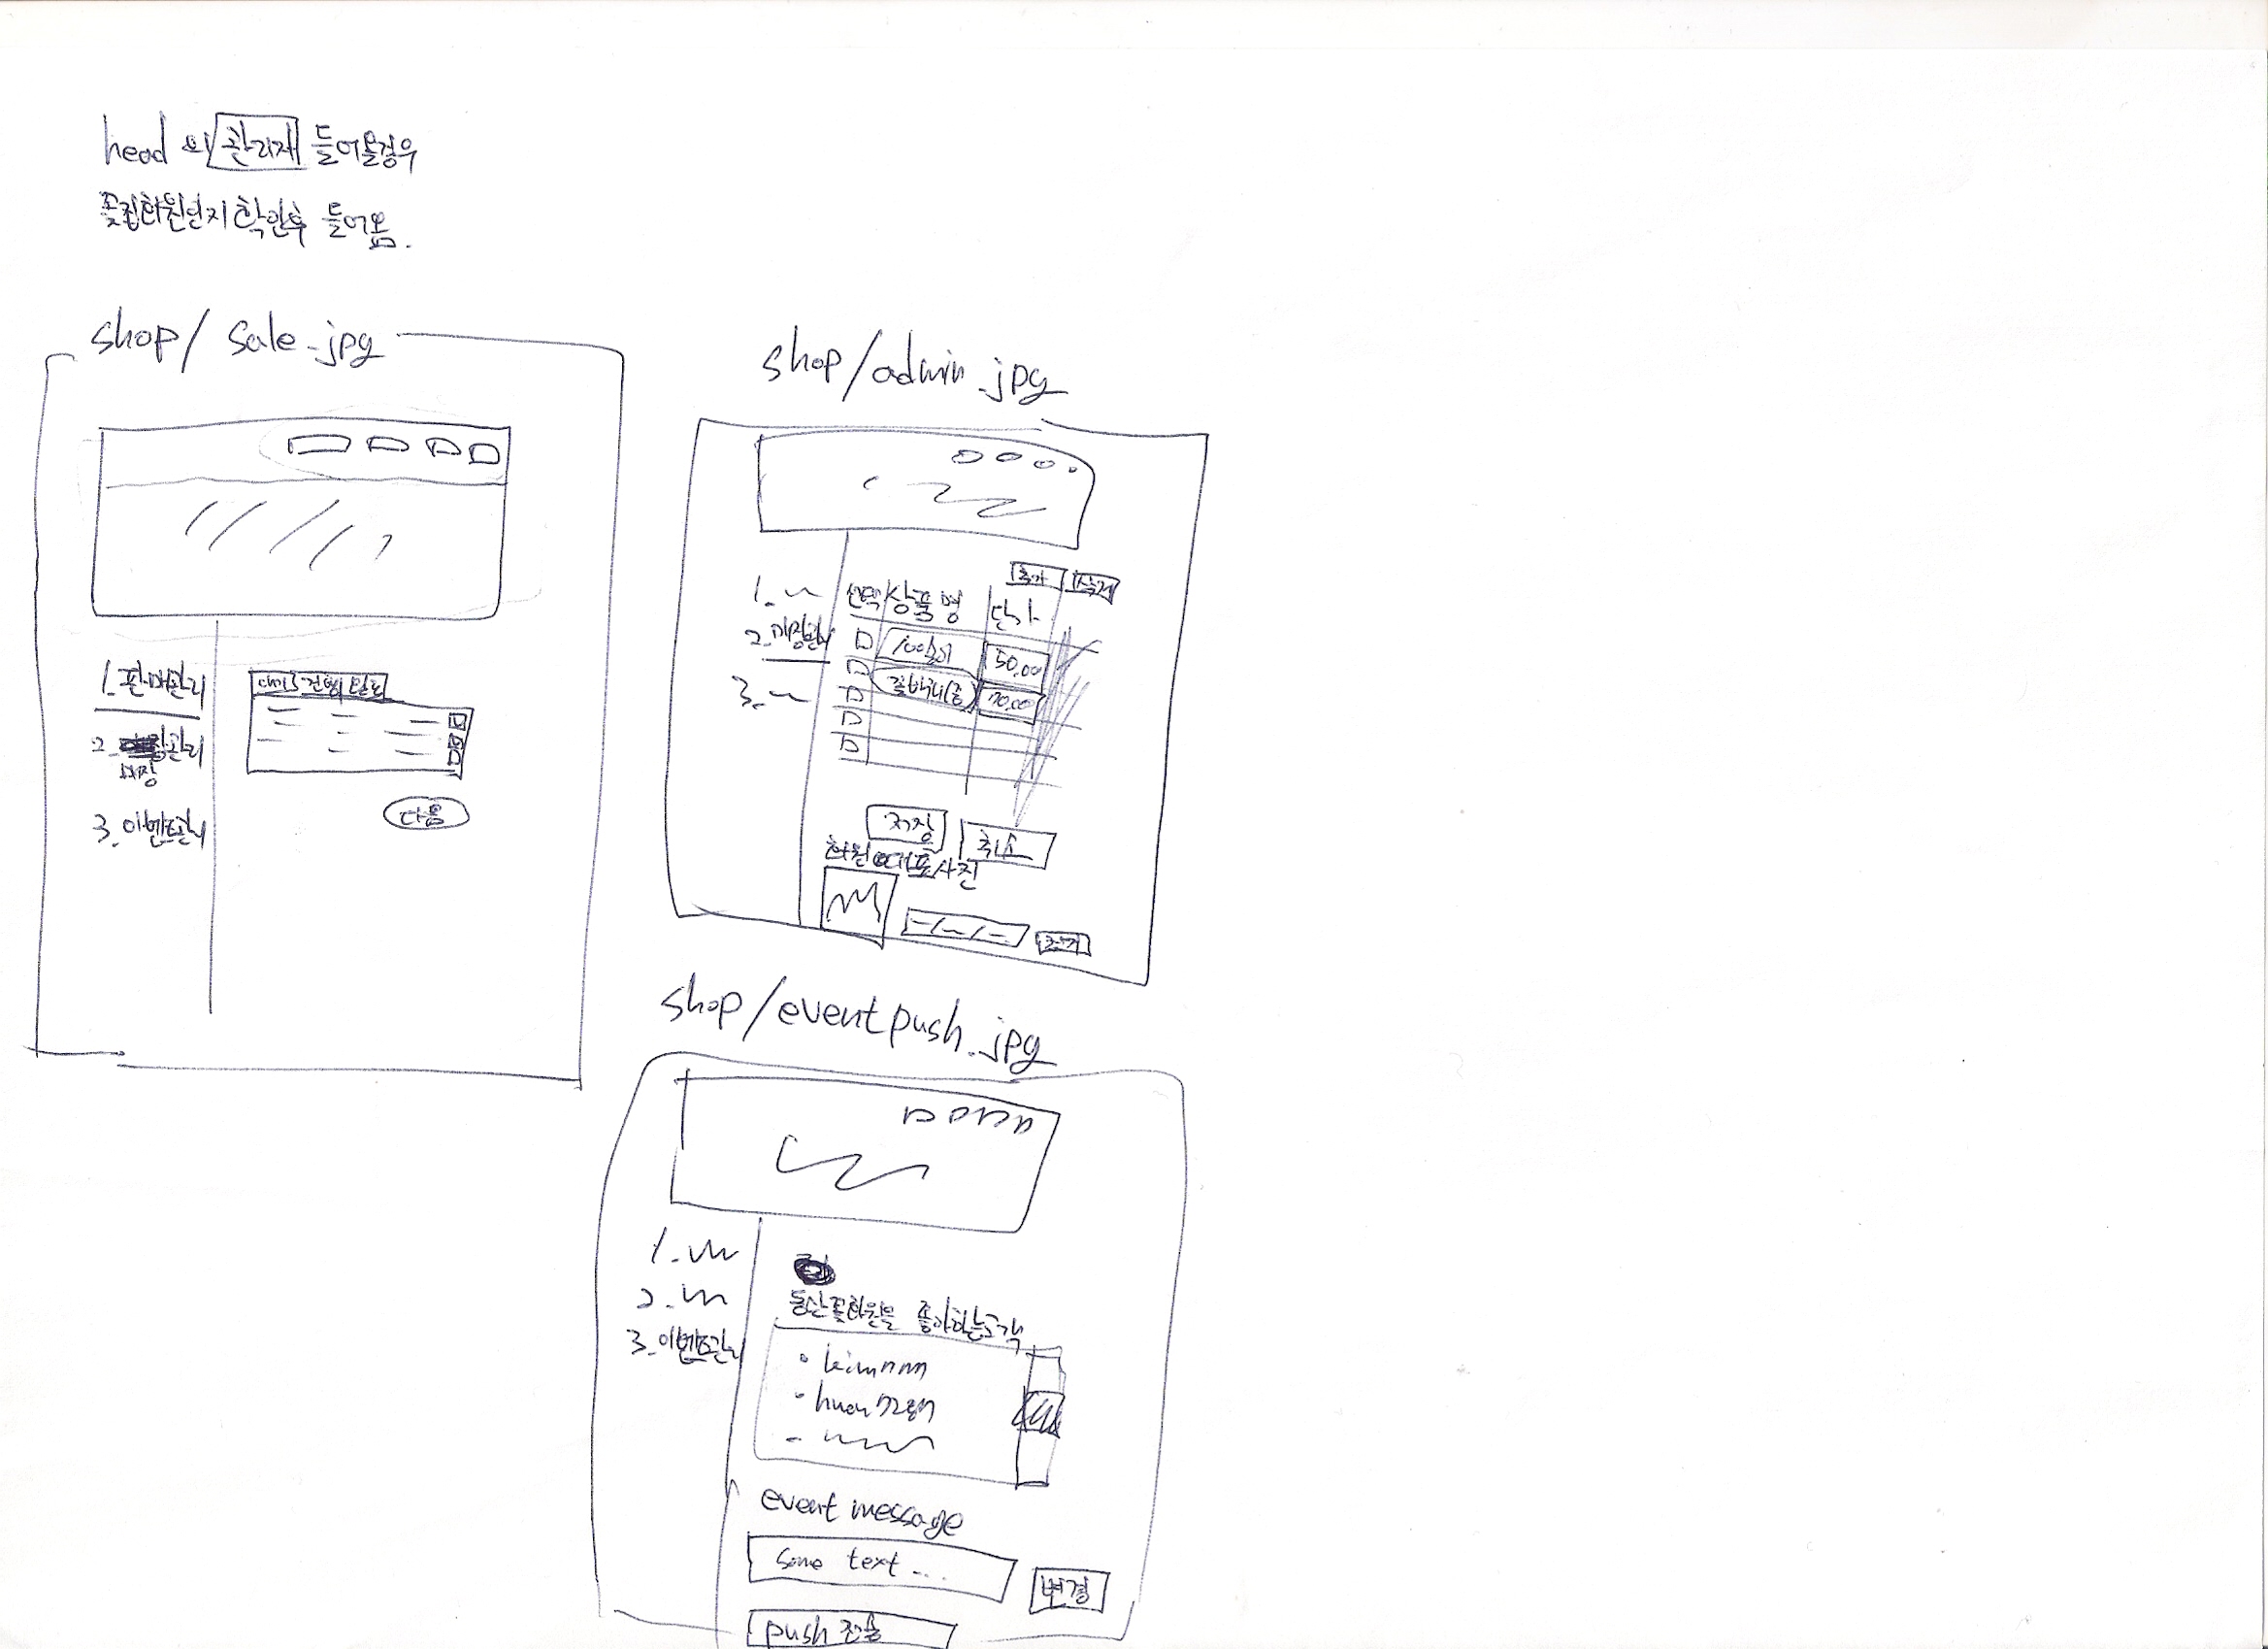 head 의 관리자 들어올경우
꽃집화원인지 확인후 들어옴.
shop/ sale.jpg
1. 판매관리
2. 장관리
매장
3. 이벤트관리
다음
shop/admin.jpg
추가 삭제
선택 상품명 단가
100송이 50,00
꽃바구니(중) 70,00
1.
2. 매장관리
3.
저장 취소
화원 대표사진
shop/eventpush.jpg
1.
2.
3. 이벤트관리
둘산꽃화원을 좋아하는고객
event message
some text ...
변경
push 전송